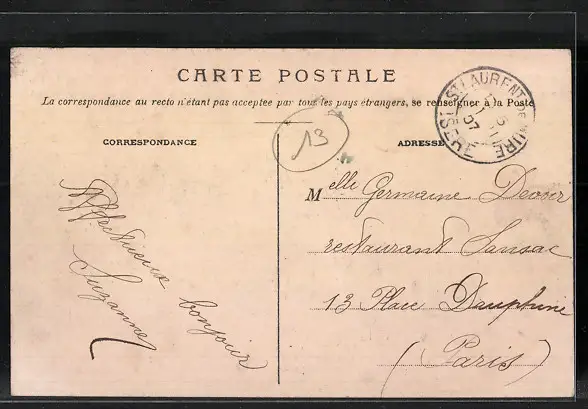 CARTE POSTALE
La correspondance au recto n'étant pas acceptée par tous les pays étrangers, se renseigner à la Poste
13
CORRESPONDANCE
ADRESSE
Affectueux bonjour
Suzanne
Melle Germaine
restaurant Sansac
13 Place Dauphine
(Paris)
ST LAURENT DE MURE